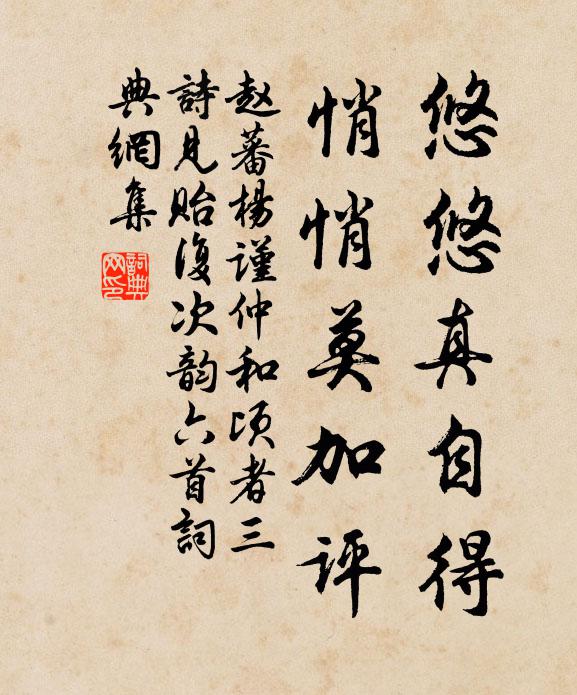 悠悠真自得
悄悄莫加评
赵蕃杨谨仲和顷者三
詩見贻復次韵六首詞
典網集
詞典网印